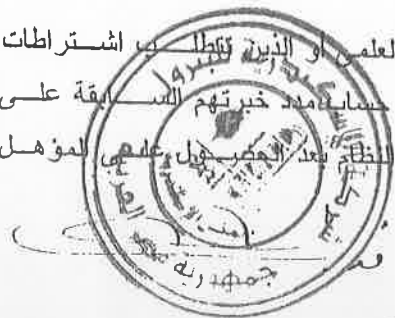 لعلمى او الذين تتطلب اشتراطات
حساب مدد خبرتهم السابقة على
النظام بعد الحصول على المؤهل
جمهورية مصر العربية